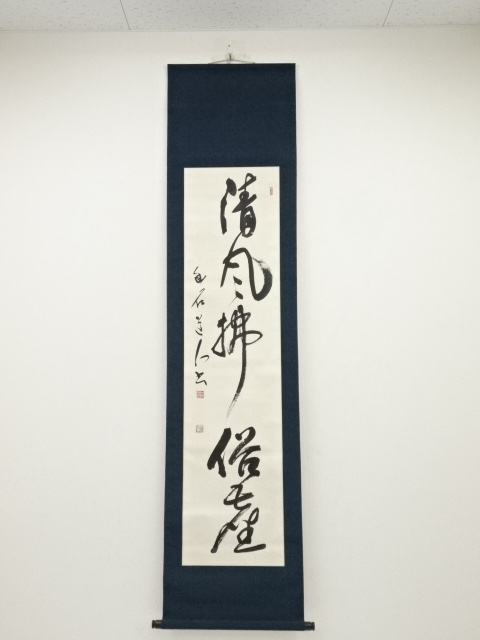 清風拂俗塵
石道人書